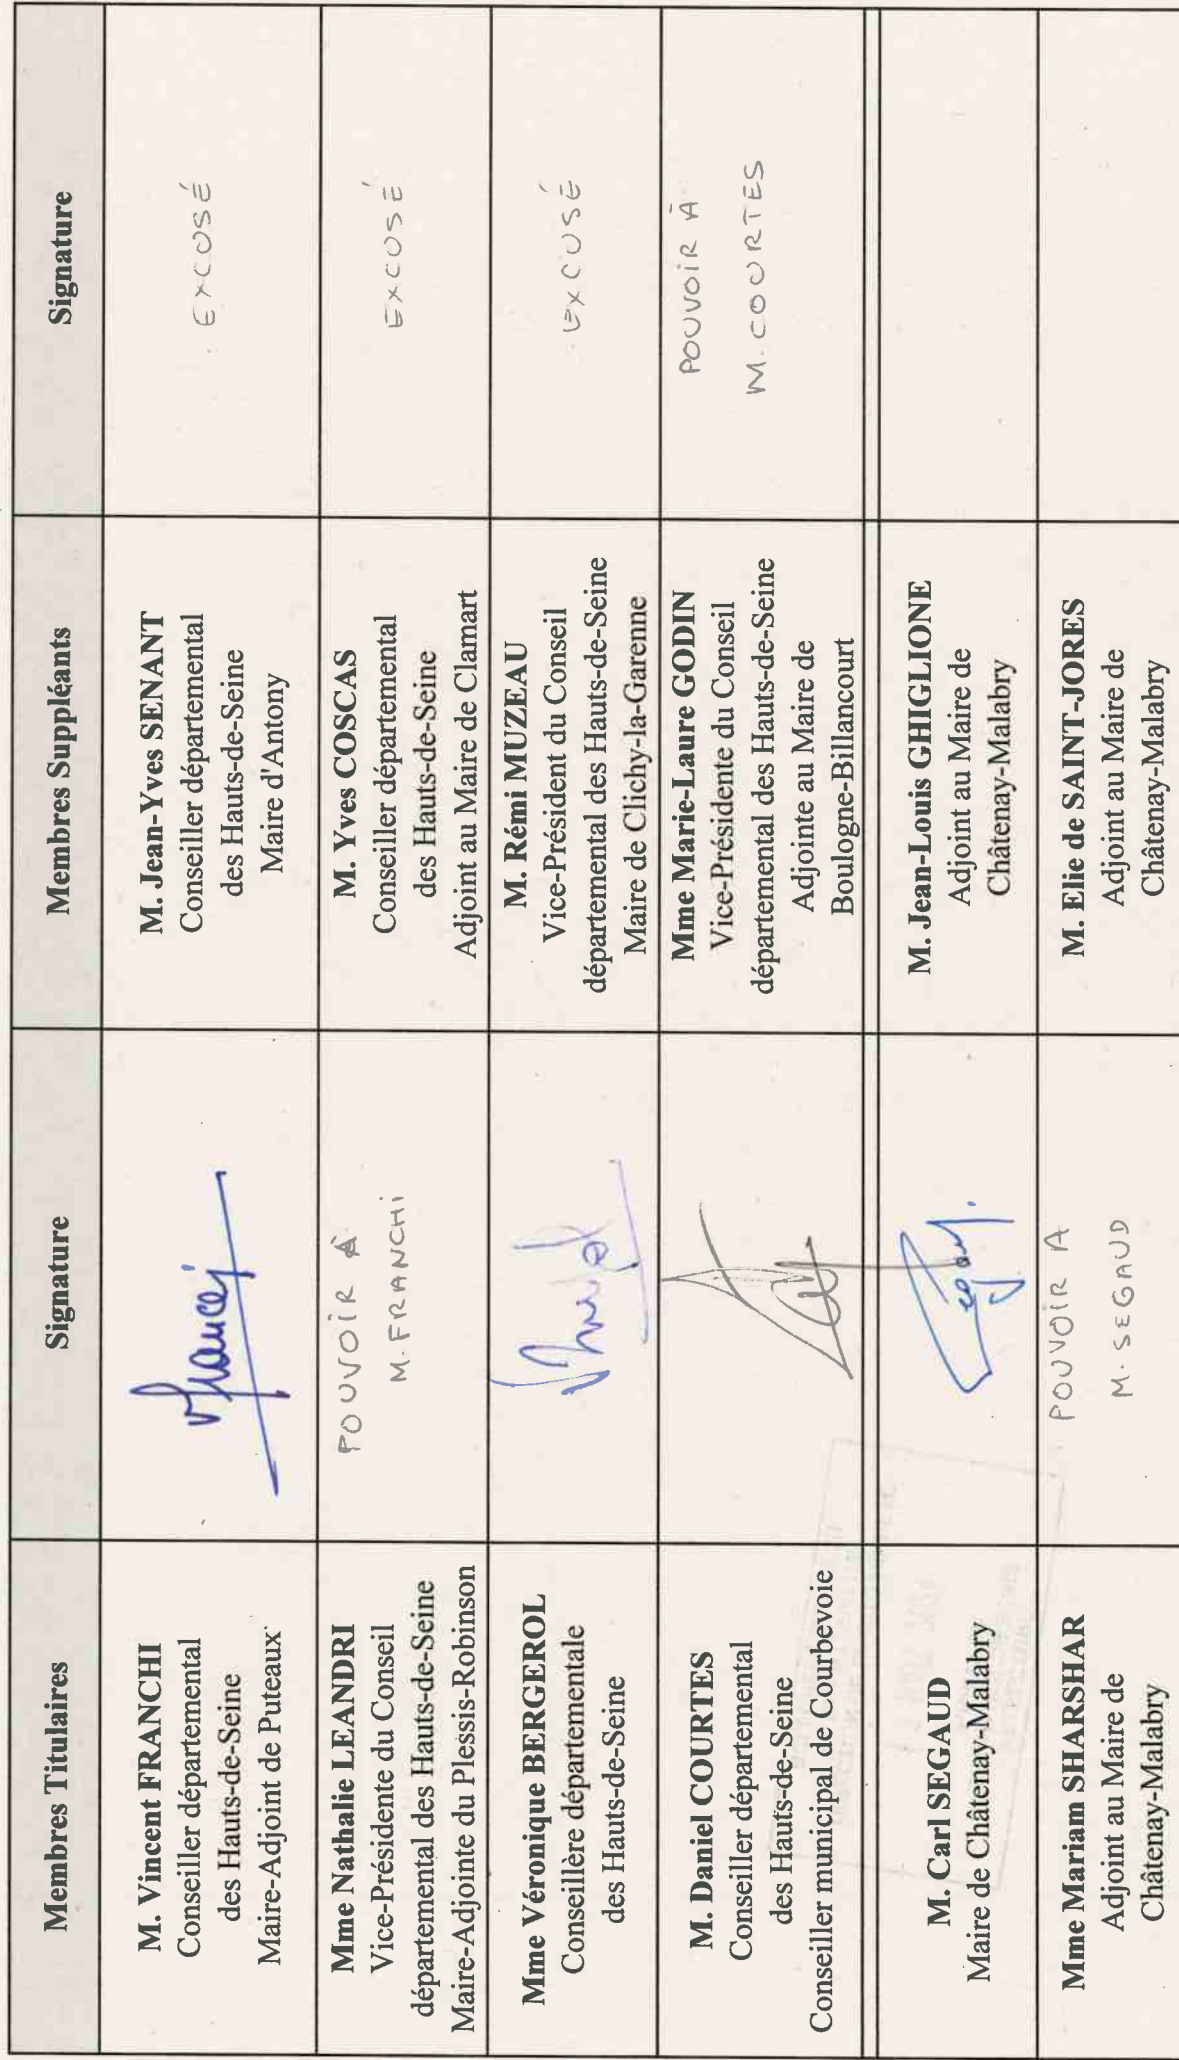 Membres Titulaires
Signature
Membres Suppléants
Signature
M. Vincent FRANCHI
Conseiller départemental
des Hauts-de-Seine
Maire-Adjoint de Puteaux
M. Jean-Yves SENANT
Conseiller départemental
des Hauts-de-Seine
Maire d'Antony
EXCUSÉ
Mme Nathalie LEANDRI
Vice-Présidente du Conseil
départemental des Hauts-de-Seine
Maire-Adjointe du Plessis-Robinson
POUVOIR À
M. FRANCHI
M. Yves COSCAS
Conseiller départemental
des Hauts-de-Seine
Adjoint au Maire de Clamart
EXCUSÉ
Mme Véronique BERGEROL
Conseillère départementale
des Hauts-de-Seine
M. Rémi MUZEAU
Vice-Président du Conseil
départemental des Hauts-de-Seine
Maire de Clichy-la-Garenne
EXCUSÉ
M. Daniel COURTES
Conseiller départemental
des Hauts-de-Seine
Conseiller municipal de Courbevoie
Mme Marie-Laure GODIN
Vice-Présidente du Conseil
départemental des Hauts-de-Seine
Adjointe au Maire de
Boulogne-Billancourt
POUVOIR À
M. COURTES
M. Carl SEGAUD
Maire de Châtenay-Malabry
M. Jean-Louis GHIGLIONE
Adjoint au Maire de
Châtenay-Malabry
Mme Mariam SHARSHAR
Adjoint au Maire de
Châtenay-Malabry
POUVOIR A
M. SEGAUD
M. Elie de SAINT-JORES
Adjoint au Maire de
Châtenay-Malabry